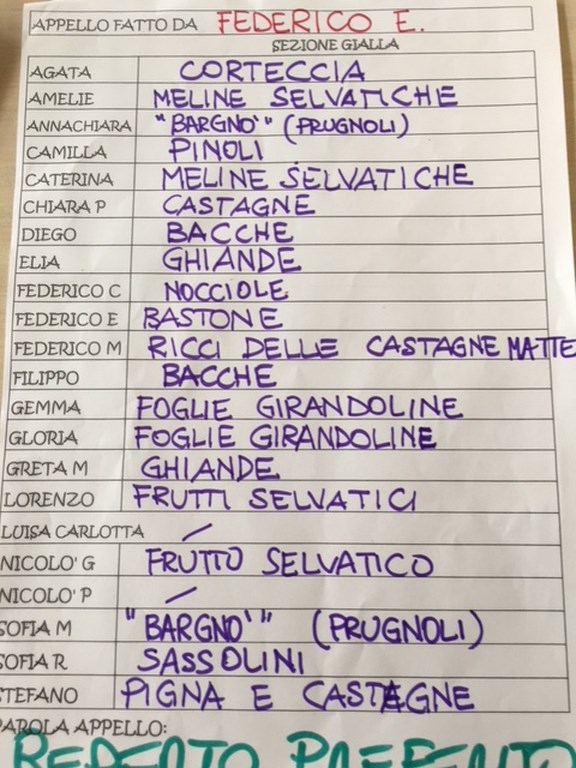 APPELLO FATTO DA FEDERICO E.
SEZIONE GIALLA
AGATA CORTECCIA
AMELIE MELINE SELVATICHE
ANNACHIARA "BARGNO'" (PRUGNOLI)
CAMILLA PINOLI
CATERINA MELINE SELVATICHE
CHIARA P CASTAGNE
DIEGO BACCHE
ELIA GHIANDE
FEDERICO C NOCCIOLE
FEDERICO E BASTONE
FEDERICO M RICCI DELLE CASTAGNE MATTE
FILIPPO BACCHE
GEMMA FOGLIE GIRANDOLINE
GLORIA FOGLIE GIRANDOLINE
GRETA M GHIANDE
LORENZO FRUTTI SELVATICI
LUISA CARLOTTA /
NICOLO' G FRUTTO SELVATICO
NICOLO' P /
SOFIA M "BARGNO'" (PRUGNOLI)
SOFIA R SASSOLINI
STEFANO PIGNA E CASTAGNE
PAROLA APPELLO:
REPERTO PREFERITO